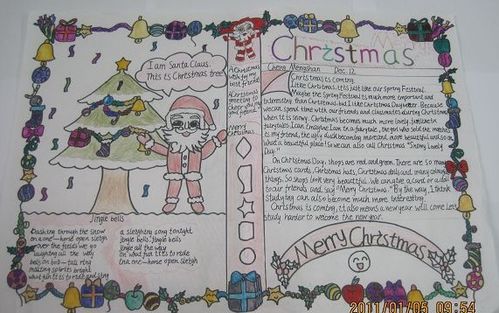 I am Santa Claus.
This is Christmas tree
Merry
Christmas
Dec. 12
Christmas is coming.
I like Christmas. It is just like our Spring Festival.
Maybe the Spring Festival is much more important and
interesting than Christmas, but I like Christmas Day better. Because
we can spend time with our friends and classmates during Christmas
when it is snowy. Christmas becomes much more lovely, just like in
fairytales. I can imagine I am in a fairytale, the girl who sold the matches
is my friend, the ugly duck becoming more and more beautiful and so on
what a beautiful place! So we can also call Christmas "Snowy Lovely
Day".
On Christmas Day, shops are red and green. There are so many
Christmas cards, Christmas hats, Christmas dolls and many other
things. So shops look very beautiful. We can give a card or a doll
to our friends and say "Merry Christmas." By the way, I think
studying can also become much more interesting.
Christmas is coming, it also means a new year will come. Let's
study harder to welcome the new year.
Merry
Christmas
Jingle bells
Dashing through the snow
on a one-horse open sleigh
over the fields we go
laughing all the way
bells on bob-tail ring
making spirits bright
what fun it is to ride and sing
a sleighing song tonight
jingle bells, jingle bells
jingle all the way
oh what fun it is to ride
in a one-horse open sleigh
Merry Christmas
2011/01/05 09:54